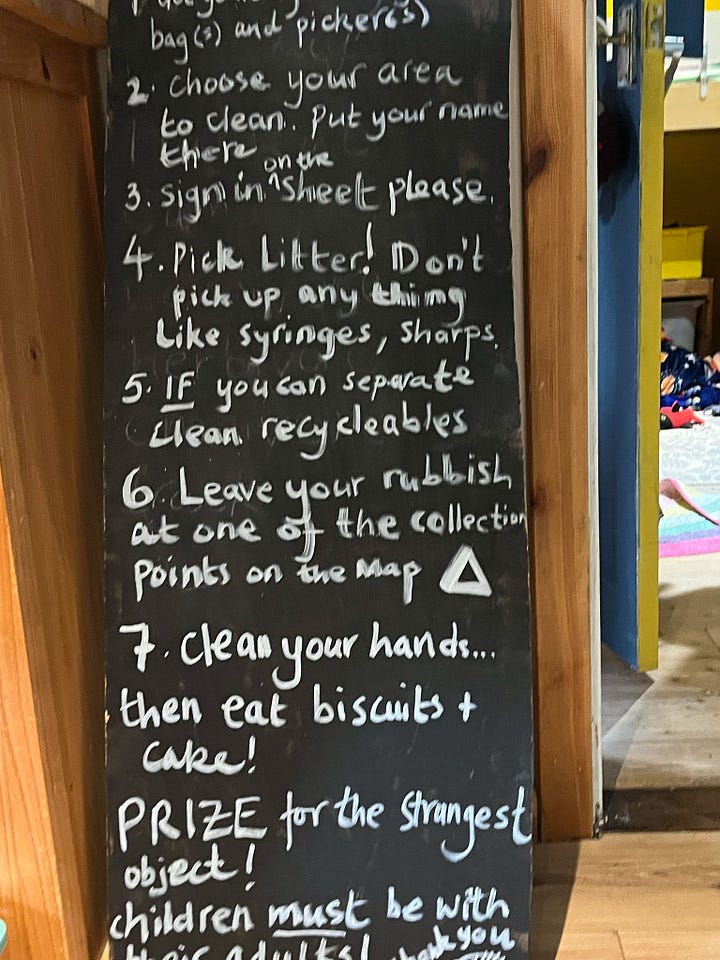 bag(s) and picker(s)
2. choose your area
to clean. Put your name
there
3. sign in ^on the sheet please.
4. Pick Litter! Don't
pick up any thing
Like syringes, sharps.
5. IF you can separate
clean recycleables
6. Leave your rubbish
at one of the collection
points on the map △
7. clean your hands...
then eat biscuits +
cake!
PRIZE for the strangest
object!
children must be with
their adults! thank you